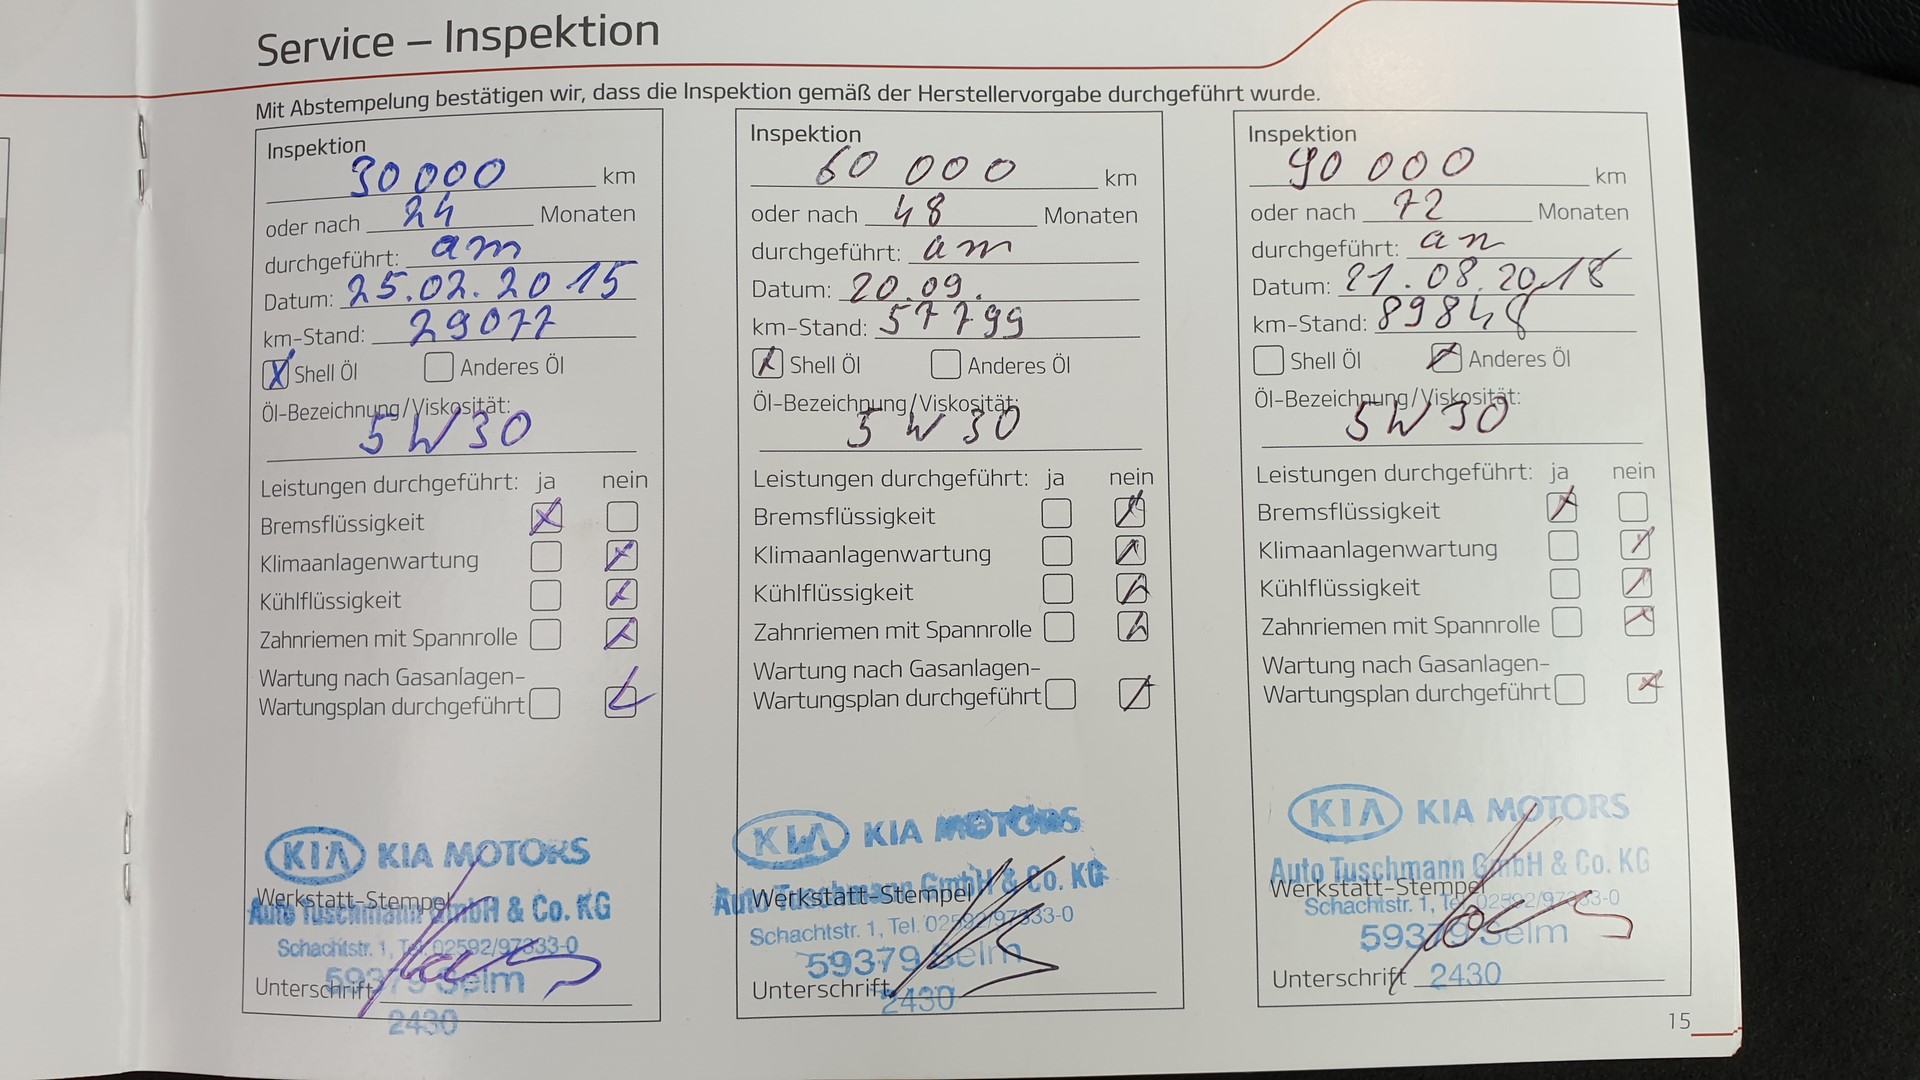 Service – Inspektion
Mit Abstempelung bestätigen wir, dass die Inspektion gemäß der Herstellervorgabe durchgeführt wurde.
Inspektion
30000 km
oder nach 24 Monaten
durchgeführt: am
Datum: 25.02.2015
km-Stand: 29077
Shell Öl Anderes Öl
Öl-Bezeichnung/Viskosität:
5W30
Leistungen durchgeführt: ja nein
Bremsflüssigkeit
Klimaanlagenwartung
Kühlflüssigkeit
Zahnriemen mit Spannrolle
Wartung nach Gasanlagen-
Wartungsplan durchgeführt
KIA KIA MOTORS
Werkstatt-Stempel
Auto Tuschmann GmbH & Co. KG
Schachtstr. 1, Tel. 02592/97333-0
59379 Selm
Unterschrift
2430
Inspektion
60 000 km
oder nach 48 Monaten
durchgeführt: am
Datum: 20.09.
km-Stand: 57799
Shell Öl Anderes Öl
Öl-Bezeichnung/Viskosität:
5W30
Leistungen durchgeführt: ja nein
Bremsflüssigkeit
Klimaanlagenwartung
Kühlflüssigkeit
Zahnriemen mit Spannrolle
Wartung nach Gasanlagen-
Wartungsplan durchgeführt
KIA KIA MOTORS
Auto Tuschmann GmbH & Co. KG
Werkstatt-Stempel
Schachtstr. 1, Tel. 02592/97333-0
59379 Selm
Unterschrift
2430
Inspektion
90 000 km
oder nach 72 Monaten
durchgeführt: an
Datum: 21.08.2018
km-Stand: 89848
Shell Öl Anderes Öl
Öl-Bezeichnung/Viskosität:
5W30
Leistungen durchgeführt: ja nein
Bremsflüssigkeit
Klimaanlagenwartung
Kühlflüssigkeit
Zahnriemen mit Spannrolle
Wartung nach Gasanlagen-
Wartungsplan durchgeführt
KIA KIA MOTORS
Auto Tuschmann GmbH & Co. KG
Werkstatt-Stempel
Schachtstr. 1, Tel. 02592/97333-0
59379 Selm
Unterschrift 2430
15